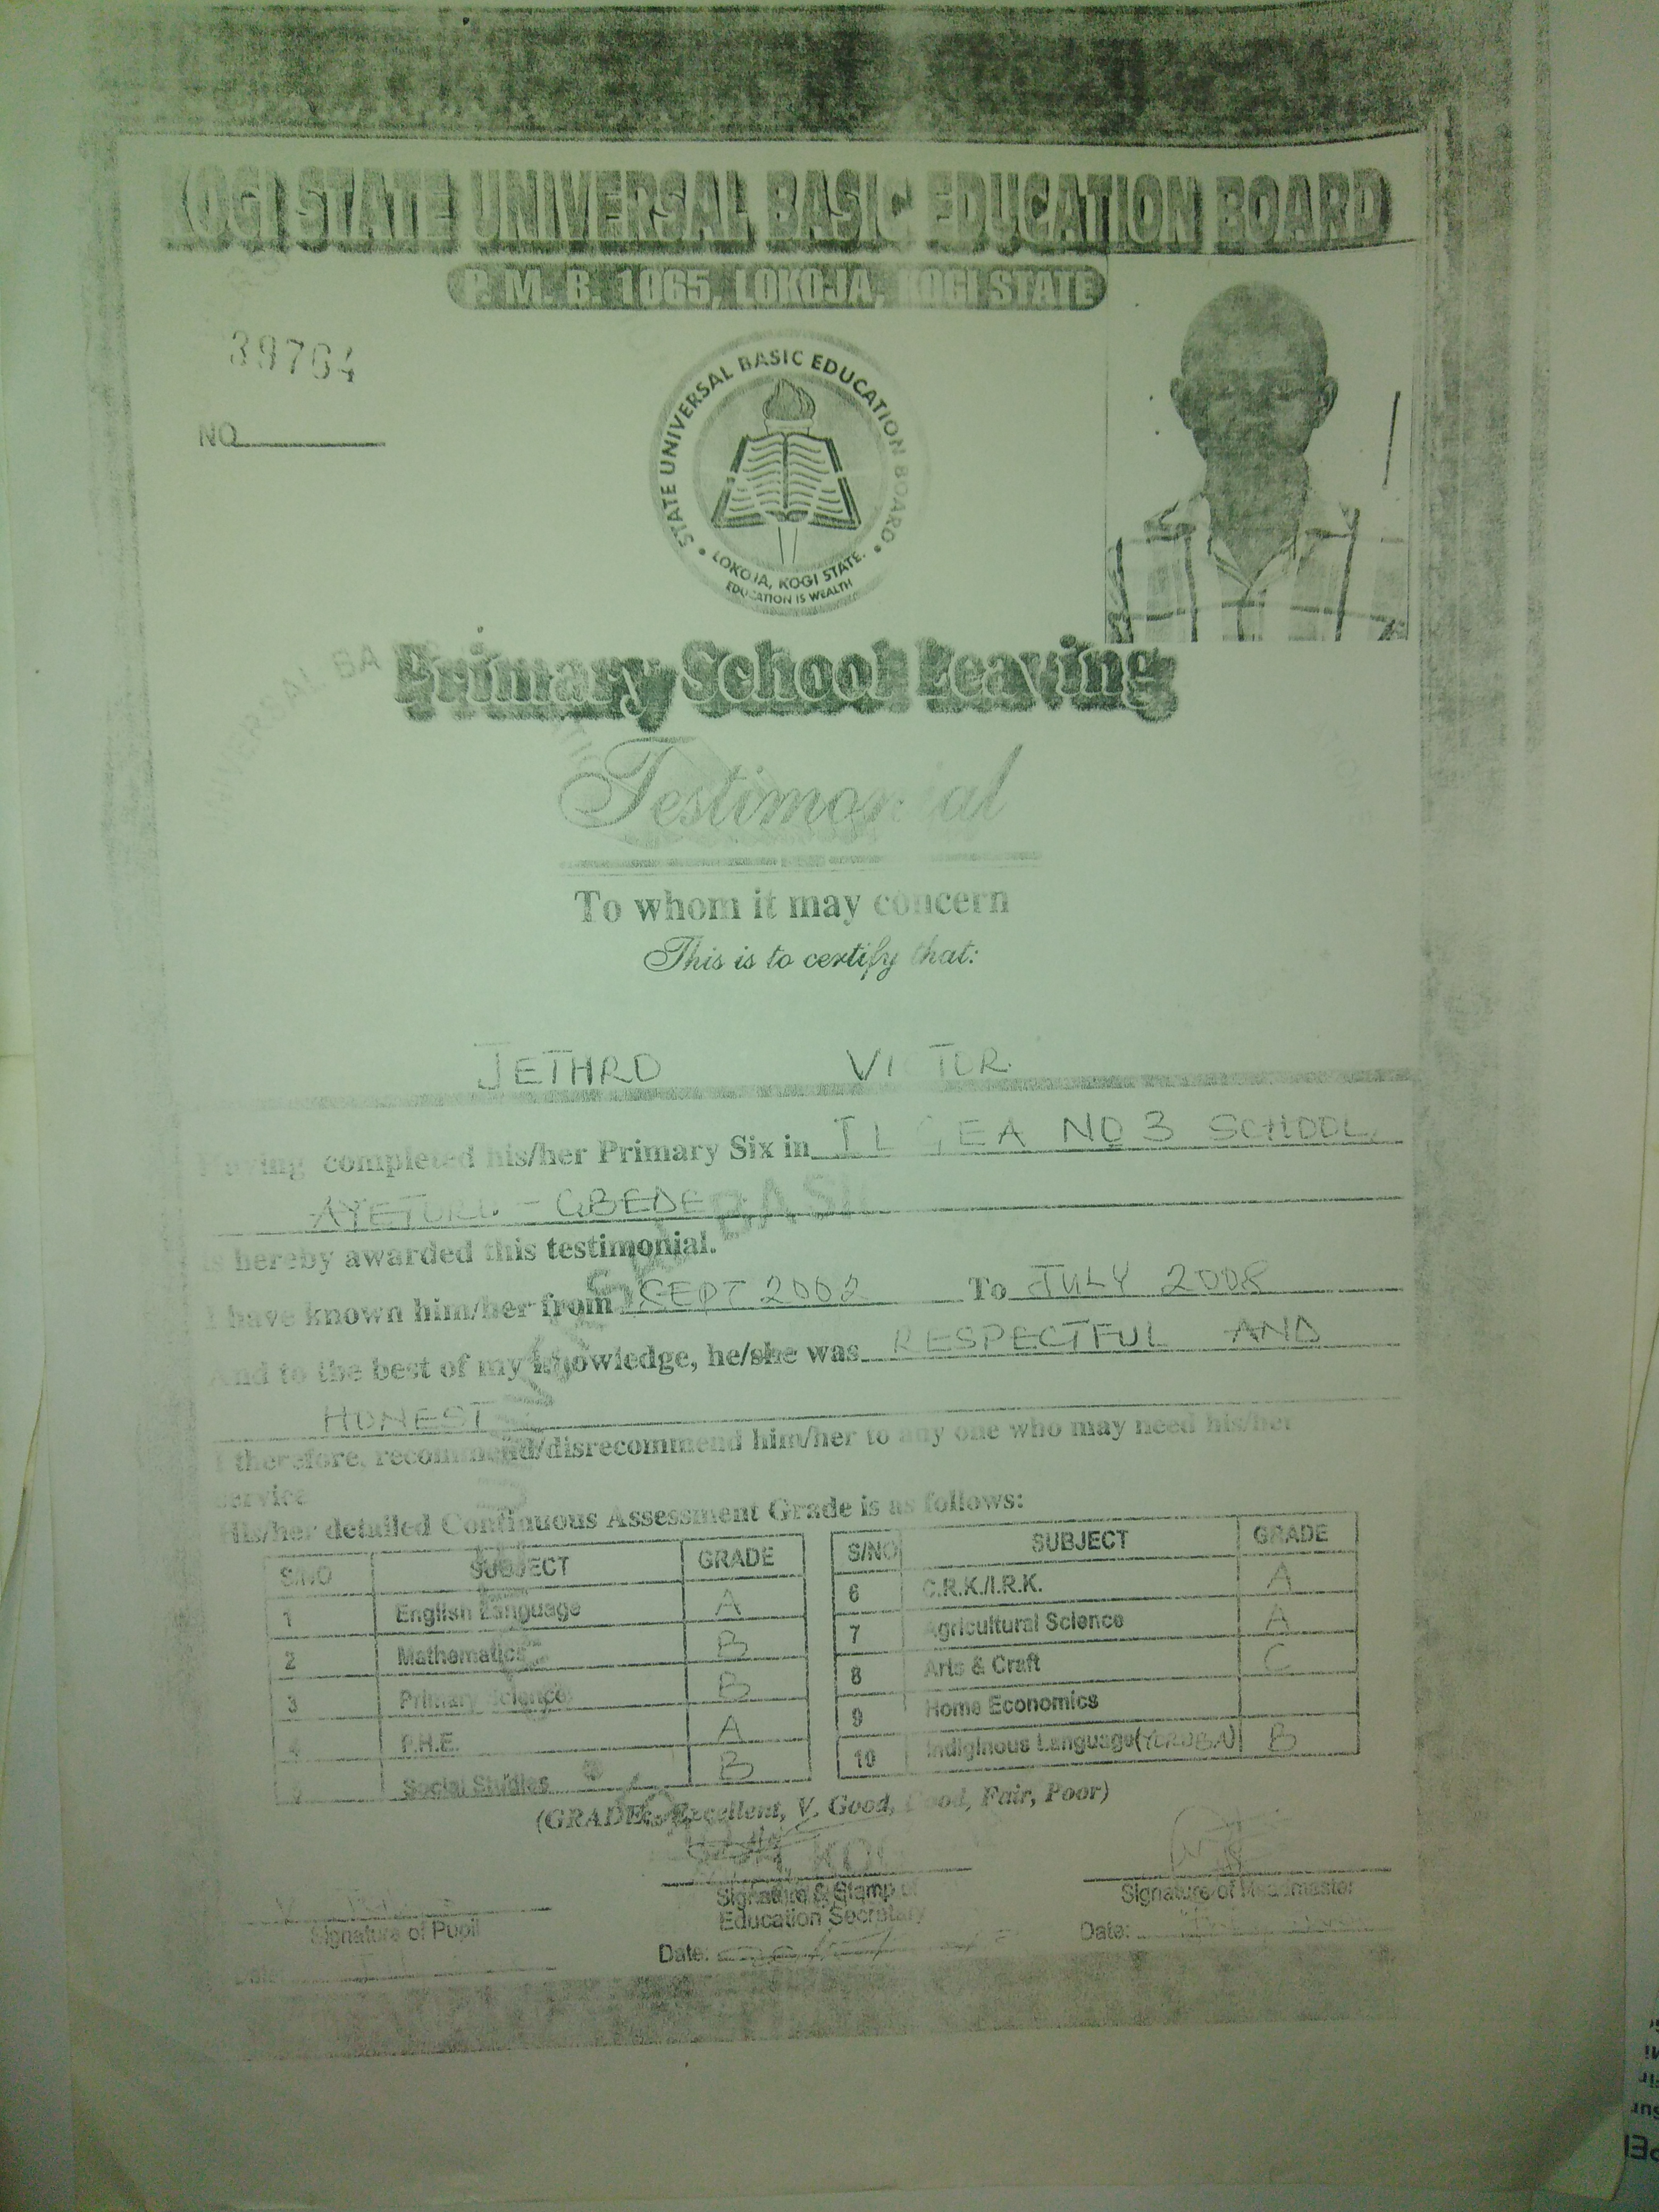 KOGI STATE UNIVERSAL BASIC EDUCATION BOARD
P. M. B. 1065, LOKOJA, KOGI STATE
39764
NO
STATE UNIVERSAL BASIC EDUCATION BOARD
LOKOJA, KOGI STATE.
EDUCATION IS WEALTH
Primary School Leaving
Testimonial
To whom it may concern
This is to certify that:
JETHRO VICTOR
Having completed his/her Primary Six in LGEA NO 3 SCHOOL,
AYETORO - GBEDE
is hereby awarded this testimonial.
I have known him/her from SEPT 2002 To JULY 2008
And to the best of my knowledge, he/she was RESPECTFUL AND
HONEST
I therefore, recommend/disrecommend him/her to any one who may need his/her
service
His/her detailed Continuous Assessment Grade is as follows:
S/NO SUBJECT GRADE
1 English Language A
2 Mathematics B
3 Primary Science B
4 P.H.E. A
5 Social Studies B
S/NO SUBJECT GRADE
6 C.R.K./I.R.K. A
7 Agricultural Science A
8 Arts & Craft C
9 Home Economics
10 Indiginous Language (YORUBA) B
(GRADE: Excellent, V. Good, Good, Fair, Poor)
Signature of Pupil
Date:
Signature & Stamp of
Education Secretary
Date:
Signature of Headmaster
Date: